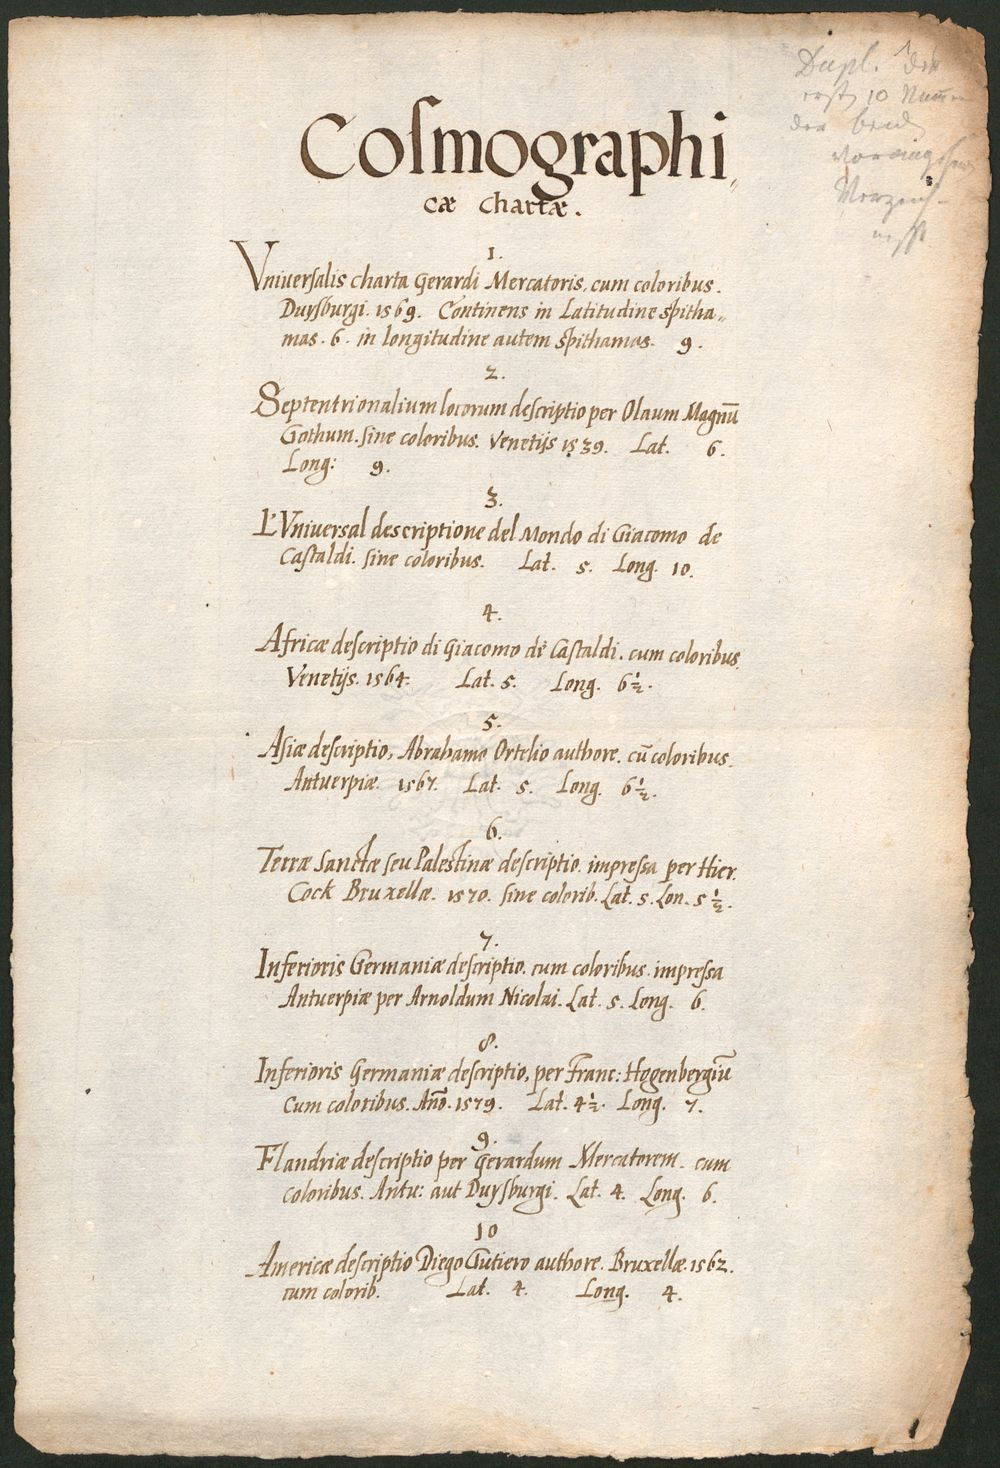 Dupl. der
erst 10 Num̄ern
der beid
Verzeich-
nisse
Coſmographi„
cæ chartæ.
1.
Vniuerſalis charta Gerardi Mercatoris, cum coloribus.
Duyſburgi. 1569. Continens in Latitudine ſpitha„
mas. 6. in longitudine autem ſpithamas. 9.
2.
Septentrionalium locorum deſcriptio per Olaum Magnū
Gothum. ſine coloribus. Venetijs 1539. Lat. 6.
Long: 9.
3.
L'Vniuersal descriptione del Mondo di Giacomo de
Caſtaldi. ſine coloribus. Lat. 5. Long. 10.
4.
Africæ deſcriptio di Giacomo de Caſtaldi. cum coloribus.
Venetijs. 1564. Lat. 5. Long. 6½.
5.
Aſiæ deſcriptio, Abrahamo Ortelio authore. cū coloribus.
Antuerpiæ. 1567. Lat. 5. Long. 6½.
6.
Terræ Sanctæ ſeu Palestinæ deſcriptio. impreſſa per Hier.
Cock Bruxellæ. 1570. ſine colorib. Lat. 5. Lon. 5½.
7.
Inferioris Germaniæ deſcriptio. cum coloribus. impreſſa
Antuerpiæ per Arnoldum Nicolai. Lat. 5. Long. 6.
8.
Inferioris Germaniæ deſcriptio, per Franc: Hogenbergiū
Cum coloribus. Año. 1579. Lat. 4½. Long. 7.
9.
Flandriæ deſcriptio per Gerardum Mercatorem. cum
coloribus. Antu: aut Duyſburgi. Lat. 4. Long. 6.
10
Americæ deſcriptio Diego Gutiero authore. Bruxellæ. 1562.
cum colorib. Lat. 4. Long. 4.